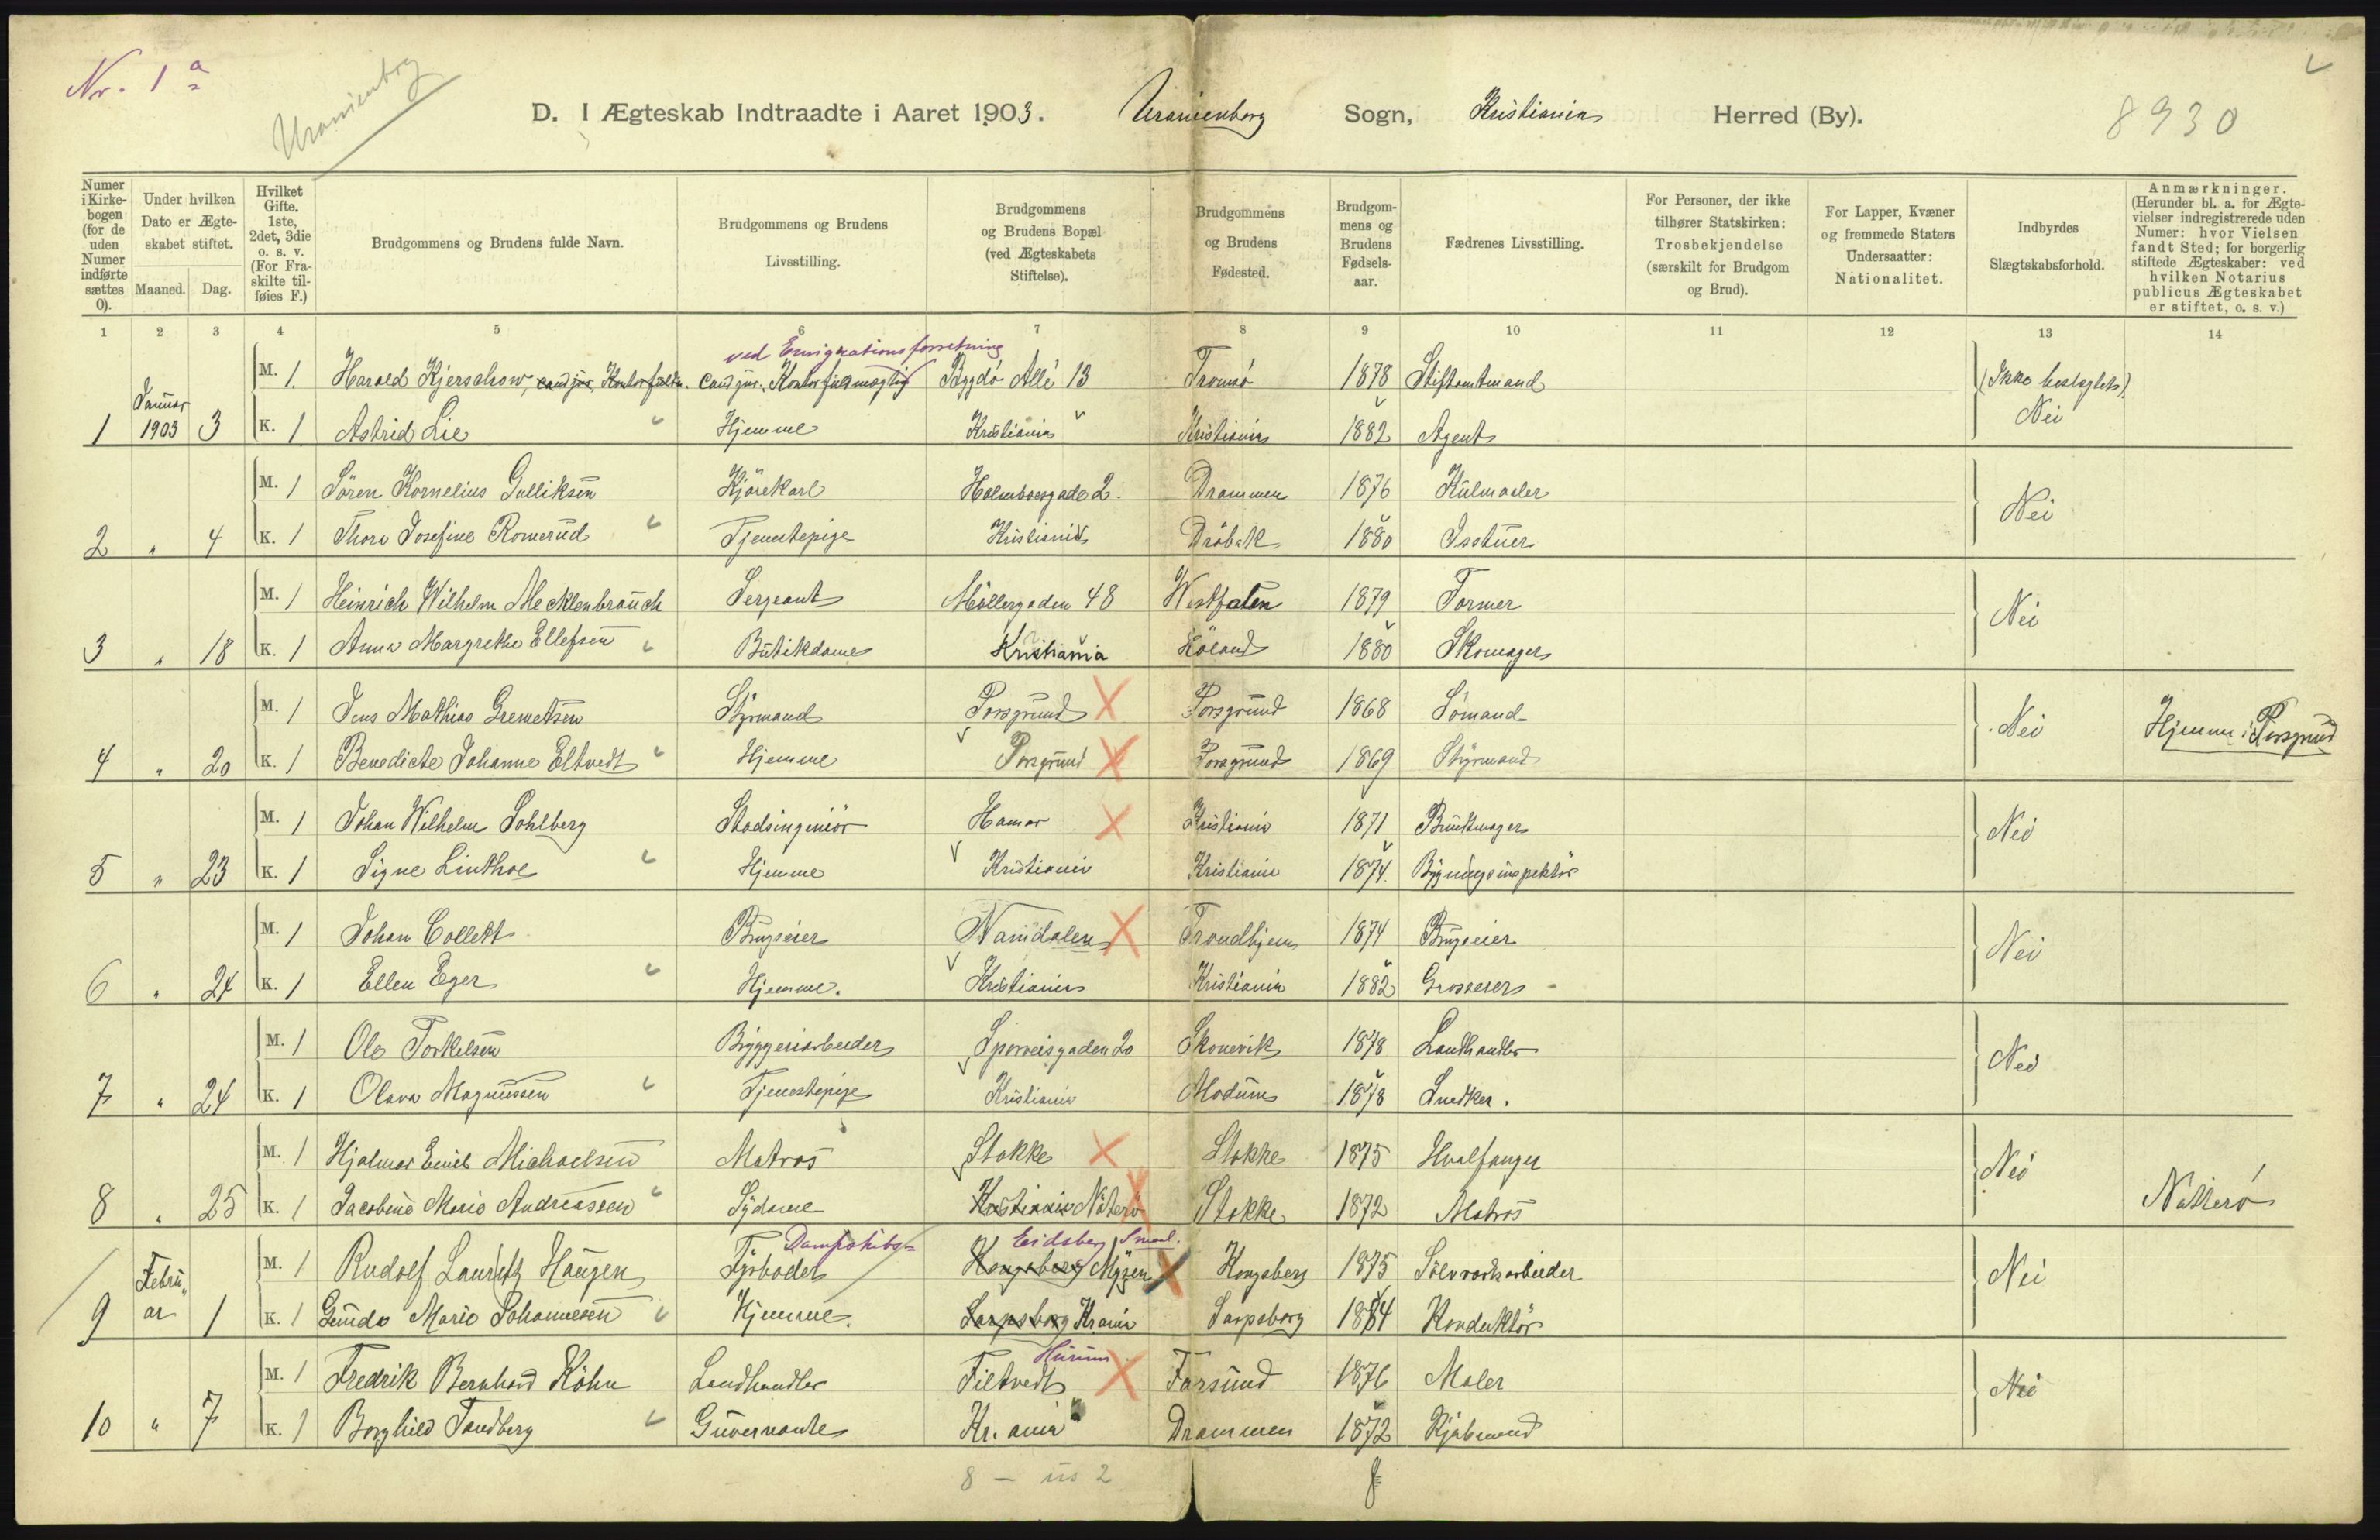 Nr. 1 a
Uranienborg
D. I Ægteskab Indtraadte i Aaret 1903. Uranienborg Sogn, Kristiania Herred (By). 8930
Numer i Kirkebogen (for de uden Numer indførte sættes 0).
Under hvilken Dato er Ægteskabet stiftet.
Maaned. Dag.
Hvilket Gifte. 1ste, 2det, 3die o. s. v. (For Fraskilte tilføies F.)
Brudgommens og Brudens fulde Navn.
Brudgommens og Brudens Livsstilling.
Brudgommens og Brudens Bopæl (ved Ægteskabets Stiftelse).
Brudgommens og Brudens Fødested.
Brudgommens og Brudens Fødselsaar.
Fædrenes Livsstilling.
For Personer, der ikke tilhører Statskirken: Trosbekjendelse (særskilt for Brudgom og Brud).
For Lapper, Kvæner og fremmede Staters Undersaatter: Nationalitet.
Indbyrdes Slægtskabsforhold.
Anmærkninger. (Herunder bl. a. for Ægtevielser indregistrerede uden Numer: hvor Vielsen fandt Sted; for borgerlig stiftede Ægteskaber: ved hvilken Notarius publicus Ægteskabet er stiftet, o. s. v.)
1 2 3 4 5 6 7 8 9 10 11 12 13 14
ved Emigrationsforretning
M. 1. Harald Kjerschow, cand jur, Kontorfuldm. Cand jur. Kontorfuldmægtig Bygdö Allé 13 Tromsö 1878 Stiftamtmand (Ikke beslægtet)
1 Januar 1903 3 K. 1 Astrid Lie Hjemme Kristiania Kristiania 1882 Agent Nei
M. 1 Sören Kornelius Gulliksen Kjörekarl Holmboesgade 2. Drammen 1876 Kulmaaler
2 " 4 K. 1 Thora Josefine Romerud Tjenestepige Kristiania Dröbak 1880 Isstuer Nei
M. 1 Heinrich Wilhelm Mecklenbrauch Sergeant Möllergaden 48 Westfalen 1879 Former
3 " 18 K. 1 Anna Margrethe Ellefsen Butikdame Kristiania Höland 1880 Skomager Nei
M. 1 Jens Mathias Gremetsen Styrmand Porsgrund Porsgrund 1868 Sömand
4 " 20 K. 1 Benedicte Johanne Eltvedt Hjemme Porsgrund Porsgrund 1869 Styrmand Nei Hjemme i Porsgrund
M. 1 Johan Wilhelm Sohlberg Stadsingeniör Hamar Kristiania 1871 Buntmager
5 " 23 K. 1 Signe Linthoe Hjemme Kristiania Kristiania 1874. Bygningsinspektör Nei
M. 1 Johan Collett Brugseier Namdalen Trondhjem 1874 Brugseier
6 " 24 K. 1 Ellen Eger Hjemme. Kristiania Kristiania 1882 Grosserer Nei
M. 1 Ole Torkelsen Bryggeriarbeider Sporveisgaden 20 Skonevik 1878 Landhandler
7 " 24 K. 1 Olava Magnussen Tjenestepige Kristiania Modum 1878 Snedker. Nei
M. 1 Hjalmar Emil Michaelsen Matros Stokke Stokke 1875 Hvalfanger
8 " 25 K. 1 Jacobine Marie Andreassen Sydame Kristiania Nöterö Stokke 1872 Matros Nei Nötterö
Dampskibs= Eidsberg Smaal.
M. 1 Rudolf Lauritz Haugen Fyrböder Kongsberg Mysen Kongsberg 1875 Sölvværksarbeider
9 Februar 1 K. 1 Gunda Marie Johannesen Hjemme. Sarpsborg Kr.ania Sarpsborg 1884 Konduktör Nei
Hurum
M. 1 Fredrik Bernhard Köhn Landhandler Filtvedt Farsund 1876 Maler
10 " 7 K. 1 Borghild Tandberg Guvernante Kr.ania Drammen 1872 Kjöbmand Nei
8 – us 2